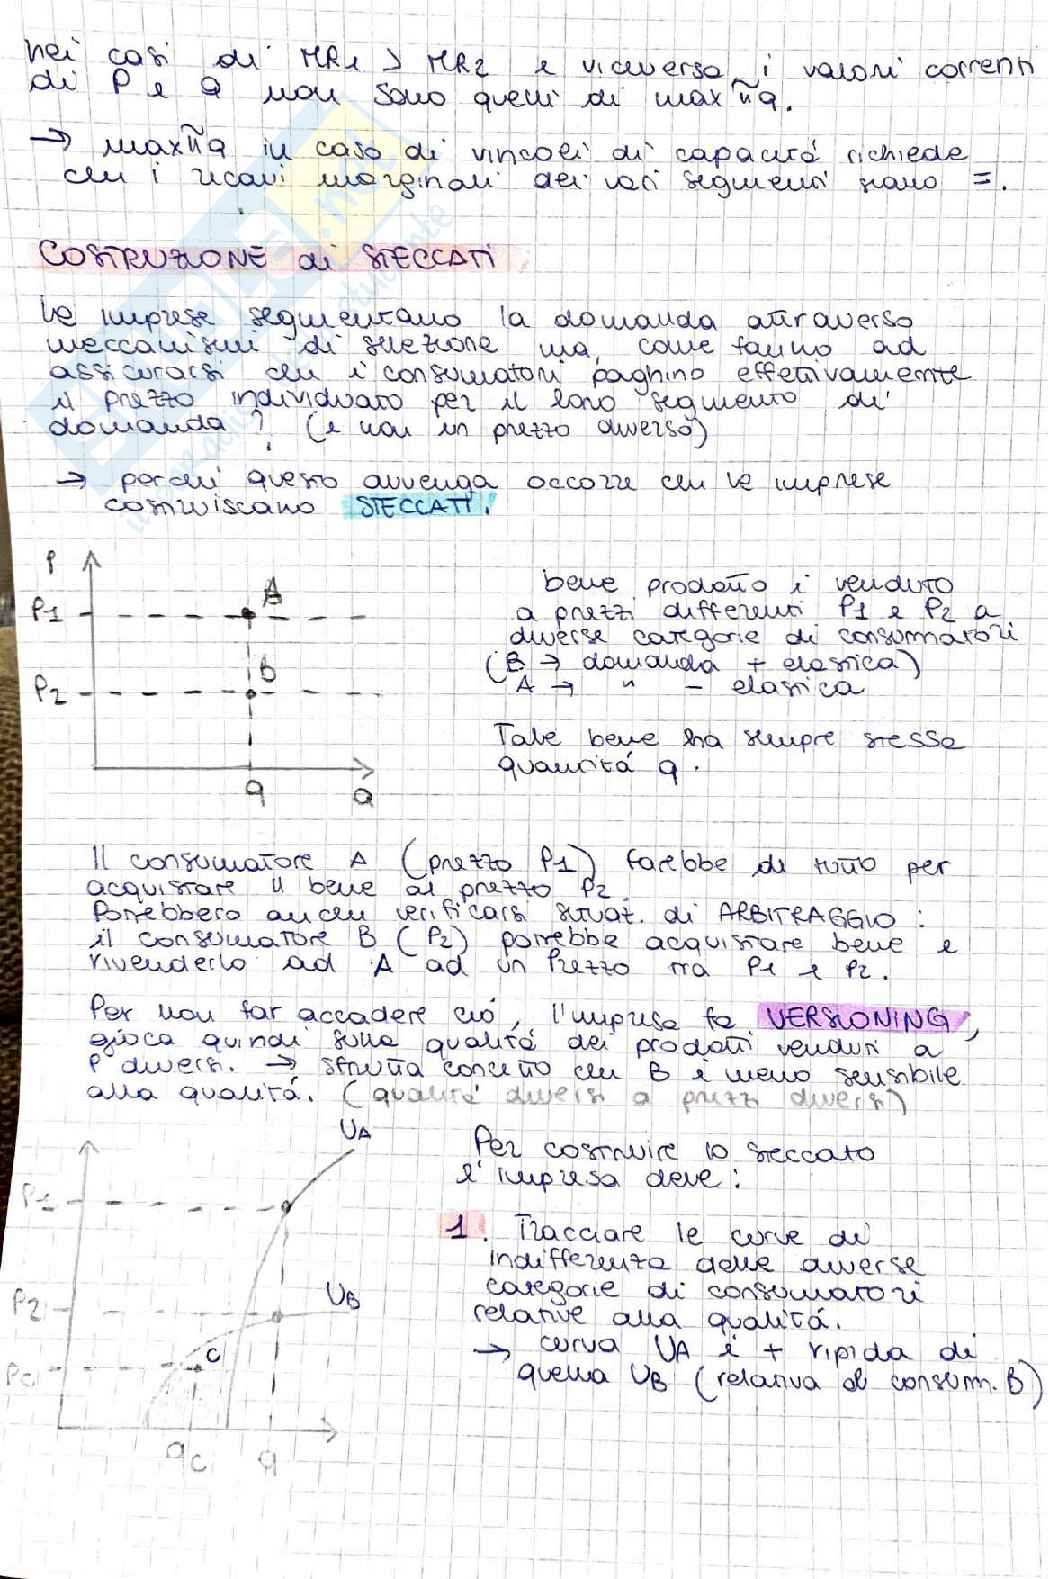 nei casi di MR1 > MR2 e viceversa, i valori correnti
di P e Q non sono quelli di max π̃a.
→ max π̃a in caso di vincoli di capacitá richiede
che i ricavi marginali dei vari segmenti siano =.
COSTRUZIONE di STECCATI
Le imprese segmentano la domanda attraverso
meccanismi di selezione ma, come fanno ad
assicurarsi che i consumatori paghino effettivamente
il prezzo individuato per il loro segmento di
domanda? (e non un prezzo diverso)
→ perché questo avvenga occorre che le imprese
costruiscano STECCATI.
P
P1
A
P2
B
q
Q
bene prodotto è venduto
a prezzi differenti P1 e P2 a
diverse categorie di consumatori
(B → domanda + elastica)
A → " - elastica
Tale bene ha sempre stessa
quantitá q.
Il consumatore A (prezzo P1) farebbe di tutto per
acquistare il bene al prezzo P2.
Potrebbero anche verificarsi situaz. di ARBITRAGGIO:
il consumatore B (P2) potrebbe acquistare bene e
rivenderlo ad A ad un Prezzo tra P1 e P2.
Per non far accadere ció, l'impresa fa VERSIONING,
gioca quindi sulla qualitá dei prodotti venduti a
P diversi. → sfrutta concetto che B è meno sensibile
alla qualitá. (qualitá diversi a prezzi diversi)
UA
P1
P2
UB
C
Pc
qc
q
Per costruire lo steccato
l'impresa deve:
1. Tracciare le curve di
indifferenza delle diverse
categorie di consumatori
relative alla qualitá.
→ curva UA è + ripida di
quella UB (relativa al consum. B)